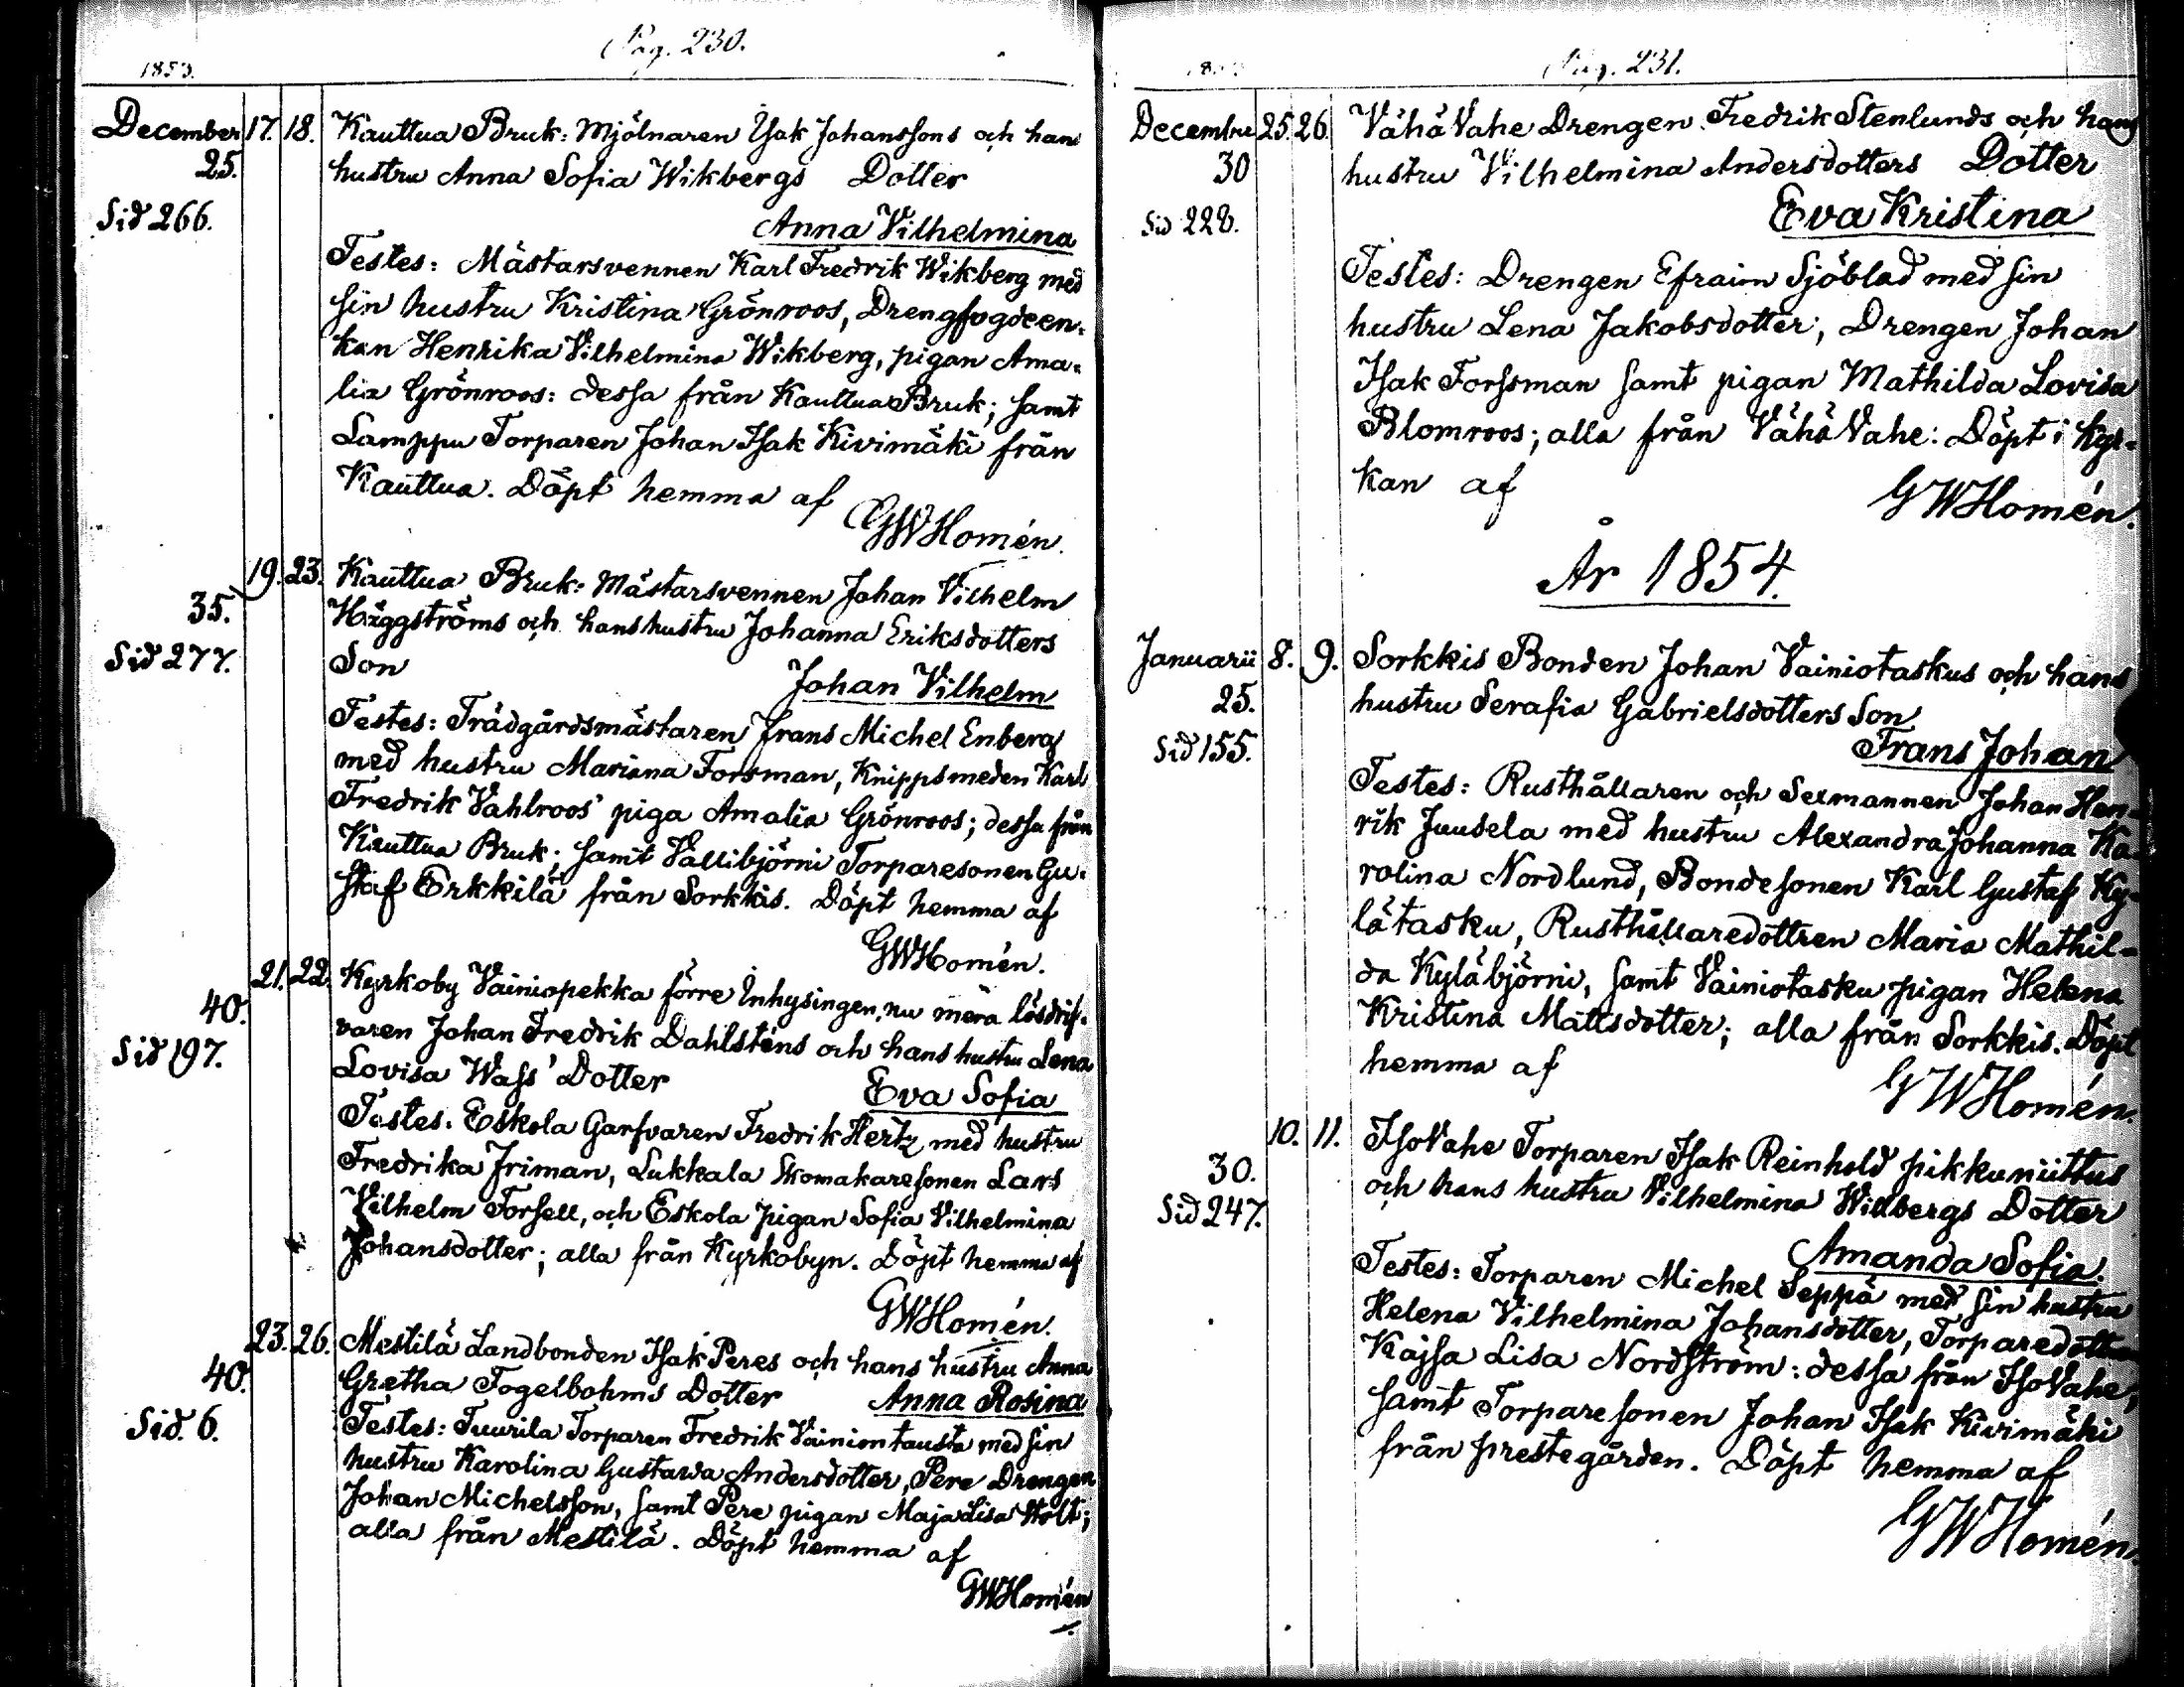 Pag. 230.
1853.
December 17. 18. Kauttua Bruk: Mjölnaren Isak Johanssons och hans
25. hustru Anna Sofia Wikbergs Dotter
Sid 266.
Anna Vilhelmina
Testes: Mästarsvennen Karl Fredrik Wikberg med
sin hustru Kristina Grönroos, Drengfogdeen-
kan Henrika Vilhelmina Wikberg, pigan Ama-
lia Grönroos: dessa från Kauttua Bruk; samt
Lamppu Torparen Johan Isak Kivimäki från
Kauttua. Döpt hemma af
GWHomén.
19. 23. Kauttua Bruk: Mästarsvennen Johan Vilhelm
35. Häggströms och hans hustru Johanna Eriksdotters
Sid 277. Son
Johan Vilhelm
Testes: Trädgårdsmästaren Frans Michel Enberg
med hustru Mariana Forsman, Knippsmeden Karl
Fredrik Vahlroos' piga Amalia Grönroos; dessa från
Kauttua Bruk; samt Vallibjörni Torparesonen Gu-
staf Erkkilä från Sorkkis. Döpt hemma af
GWHomén.
21. 22. Kyrkoby Vainiopekka förre Inhysingen, nu mera lösdrif-
40. varen Johan Fredrik Dahlsténs och hans hustru Lena
Sid 197. Lovisa Wass' Dotter Eva Sofia
Testes. Eskola Garfvaren Fredrik Hertz med hustru
Fredrika Friman, Lukkala Skomakaresonen Lars
Vilhelm Forsell, och Eskola pigan Sofia Vilhelmina
Johansdotter; alla från Kyrkobyn. Döpt hemma af
GWHomén.
23. 26. Mestilä Landbonden Isak Peres och hans hustru Anna
40. Gretha Fogelbohms Dotter Anna Rosina
Sid. 6. Testes: Tuurila Torparen Fredrik Vainiontausta med sin
hustru Karolina Gustawa Andersdotter, Pere Drengen
Johan Michelsson, samt Pere pigan Maja Lisa Stolt;
alla från Mestilä. Döpt hemma af
GWHomén
Pag. 231.
December 25. 26. Vähä Vahe Drengen Fredrik Stenlunds och hans
30 hustru Vilhelmina Andersdotters Dotter
Sid 228. Eva Kristina
Testes: Drengen Efraim Sjöblad med sin
hustru Lena Jakobsdotter; Drengen Johan
Isak Forssman samt pigan Mathilda Lovisa
Blomroos; alla från Vähä Vahe: Döpt i Kyr-
kan af
GWHomén.
År 1854.
Januarii 8. 9. Sorkkis Bonden Johan Vainiotaskus och hans
25. hustru Serafia Gabrielsdotters Son
Sid 155. Frans Johan
Testes: Rusthållaren och Sexmannen Johan Hen-
rik Juusela med hustru Alexandra Johanna Ka-
rolina Nordlund, Bondesonen Karl Gustaf Ky-
lätasku, Rusthållaredottren Maria Mathil-
da Kyläbjörni, samt Vainiotasku pigan Helena
Kristina Mattsdotter; alla från Sorkkis. Döpt
hemma af
GWHomén.
10. 11. Iso Vahe Torparen Isak Reinhold pikkuniittus
30. och hans hustru Vilhelmina Widbergs Dotter
Sid 247.
Amanda Sofia.
Testes: Torparen Michel Seppä med sin hustru
Helena Vilhelmina Johansdotter, Torparedottren
Kajsa Lisa Nordström: dessa från Iso Vahe,
samt Torparesonen Johan Isak Kivimäki
från prestegården. Döpt hemma af
GWHomén.